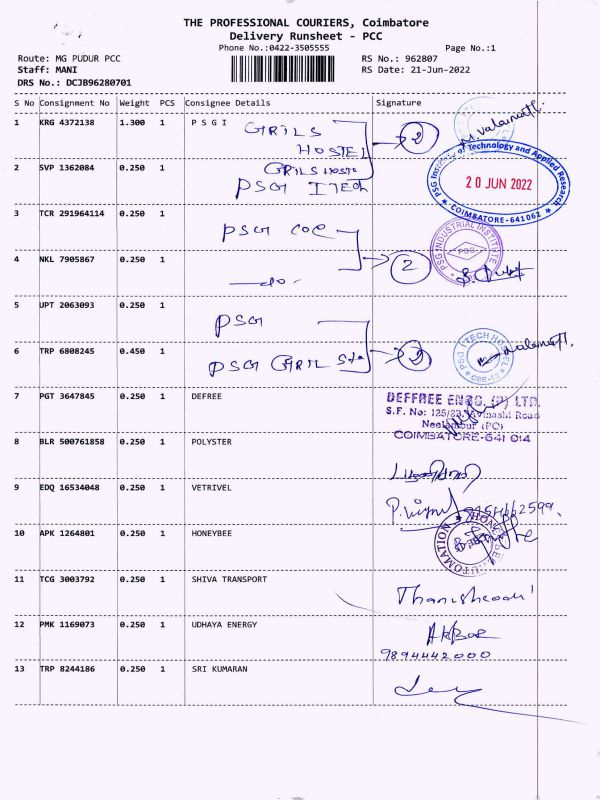 THE PROFESSIONAL COURIERS, Coimbatore
Delivery Runsheet - PCC
Phone No.:0422-3505555
Page No.:1
Route: MG PUDUR PCC
RS No.: 962807
Staff: MANI
RS Date: 21-Jun-2022
DRS No.: DCJB96280701
S No Consignment No Weight PCS Consignee Details Signature
1 KRG 4372138 1.300 1 P S G I GRILS HOSTEL 2
2 SVP 1362084 0.250 1 GRILS HOSTE
PSG ITECH
PSG Institute of Technology and Applied Research
20 JUN 2022
COIMBATORE-641062
3 TCR 291964114 0.250 1 PSG COE
PSG INDUSTRIAL INSTITUTE
PSG
4 NKL 7905867 0.250 1 -do- 2
5 UPT 2063093 0.250 1 PSG
PSG ITECH HOSTEL
CBE-62
6 TRP 6808245 0.450 1 PSG GRIL 2
7 PGT 3647845 0.250 1 DEFREE
DEFFREE ENGG. (P) LTD.
S.F. No: 135/23, Avinashi Road
Neelambur (PO)
COIMBATORE-641 014
8 BLR 500761858 0.250 1 POLYSTER
9 EDQ 16534048 0.250 1 VETRIVEL
10 APK 1264801 0.250 1 HONEYBEE
11 TCG 3003792 0.250 1 SHIVA TRANSPORT
12 PMK 1169073 0.250 1 UDHAYA ENERGY AKBAR
9894442000
13 TRP 8244186 0.250 1 SRI KUMARAN